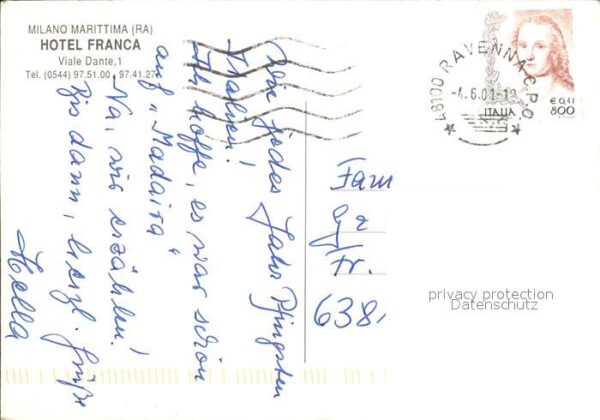 MILANO MARITTIMA (RA)
HOTEL FRANCA
Viale Dante, 1
Tel. (0544) 97.51.00 - 97.41.27
Wie jedes Jahr Pfingsten
Italien!
Ich hoffe, es war schön
auf "Madaira"
Na, wir erzählen!
Bis dann, herzl. Grüße
Hella
48100 RAVENNA C.P.O
-4.6.01-19
ITALIA
€ 0,41
800
Fam
Fr.
638
privacy protection
Datenschutz